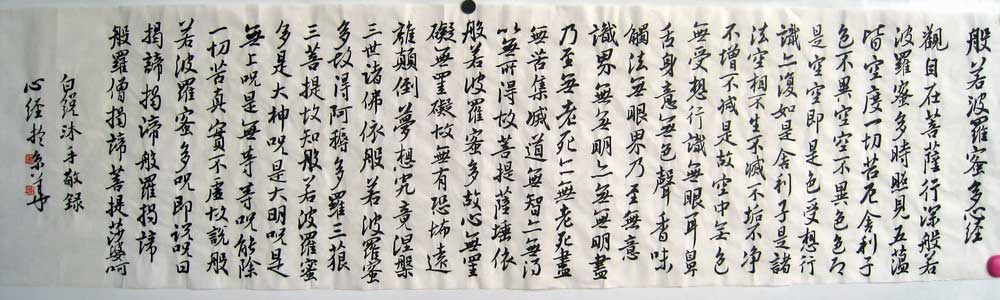 般若波羅蜜多心經
觀自在菩薩行深般若
波羅蜜多時照見五蘊
皆空度一切苦厄舍利子
色不異空空不異色色即
是空空即是色受想行
識亦復如是舍利子是諸
法空相不生不滅不垢不净
不增不减是故空中無色
無受想行識無眼耳鼻
舌身意無色聲香味
觸法無眼界乃至無意
識界無無明亦無無明盡
乃至無老死亦無老死盡
無苦集滅道無智亦無得
以無所得故菩提薩埵依
般若波羅蜜多故心無罣
礙無罣礙故無有恐怖遠
離顛倒夢想究竟涅槃
三世諸佛依般若波羅蜜
多故得阿耨多羅三藐
三菩提故知般若波羅蜜
多是大神呪是大明呪是
無上呪是無等等呪能除
一切苦真實不虛故說般
若波羅蜜多呪即説呪曰
揭諦揭諦般羅揭諦
般羅僧揭諦菩提莎婆呵
沐手敬錄
心經於京